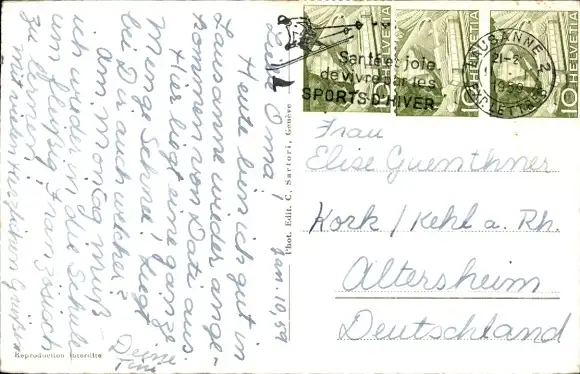 Jan. 11, 59
Liebe Oma!
Heute bin ich gut in
Lausanne wieder ange-
kommen von Dati aus.
Hier liegt eine ganze
Menge Schnee. Liegt
bei Dir auch welcher?
Am Montag muß
ich wieder in die Schule
um fleißig Französisch
zu lernen!
mit vielen herzlichen Grüßen
Deine
Phot. Edit. C. Sartori, Genève
Reproduction interdite
Santé et joie
de vivre par les
SPORTS D'HIVER
LAUSANNE 2
1959
EXP. LETTRES
10 HELVETIA
10 HELVETIA
10 HELVETIA
Frau
Elise Guenthner
Kork / Kehl a. Rh.
Altersheim
Deutschland